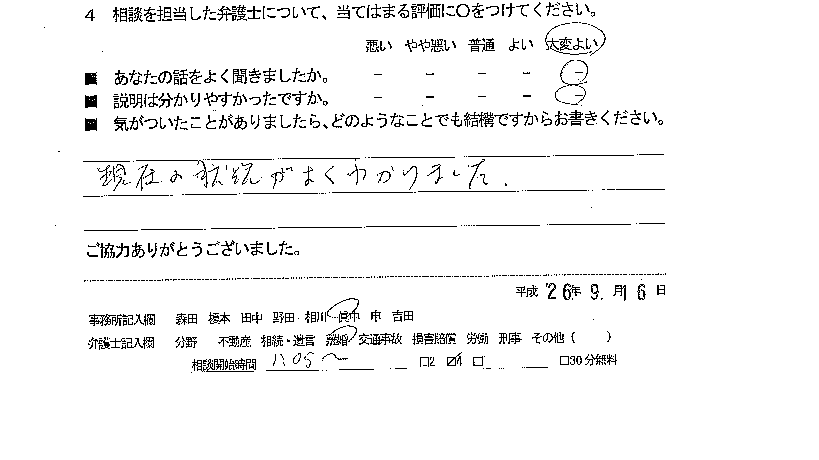 4 相談を担当した弁護士について、当てはまる評価に○をつけてください。
悪い やや悪い 普通 よい 大変よい
■ あなたの話をよく聞きましたか。 － － － － －
■ 説明は分かりやすかったですか。 － － － － －
■ 気がついたことがありましたら、どのようなことでも結構ですからお書きください。
現在の状況がよくわかりました.
ご協力ありがとうございました。
平成 26年 9. 月 16 日
事務所記入欄 森田 榎本 田中 野田 相川 畑中 申 吉田
弁護士記入欄 分野 不動産 相続・遺言 離婚 交通事故 損害賠償 労働 刑事 その他 ( )
相談開始時間 11:05~ □2 ☑4 □ □30分無料